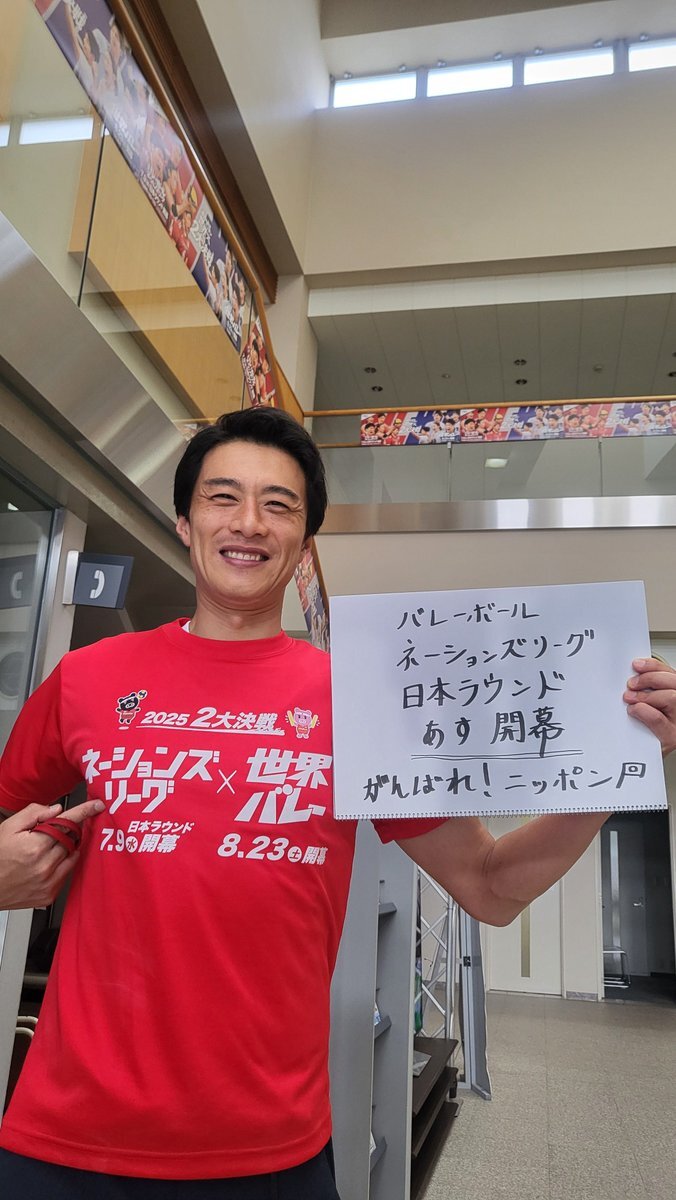 バレーボール
ネーションズリーグ
日本ラウンド
あす 開幕
がんばれ！ニッポン
2025 2大決戦
ネーションズリーグ × 世界バレー
日本ラウンド
7.9水開幕
8.23土開幕